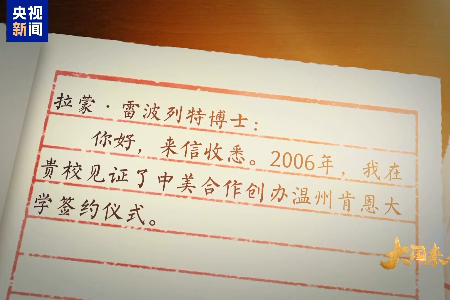 央视
新闻
拉蒙·雷波列特博士：
你好，来信收悉。2006年，我在
贵校见证了中美合作创办温州肯恩大
学签约仪式。